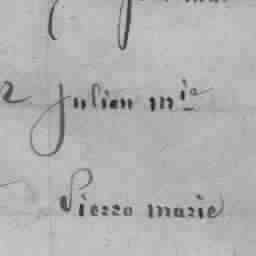 2 Julien mie
Pierre marie